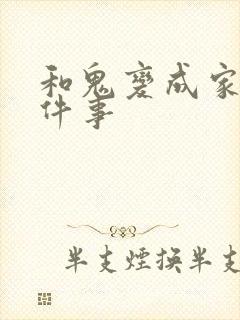 和鬼變成家
件事
半支煙換半支